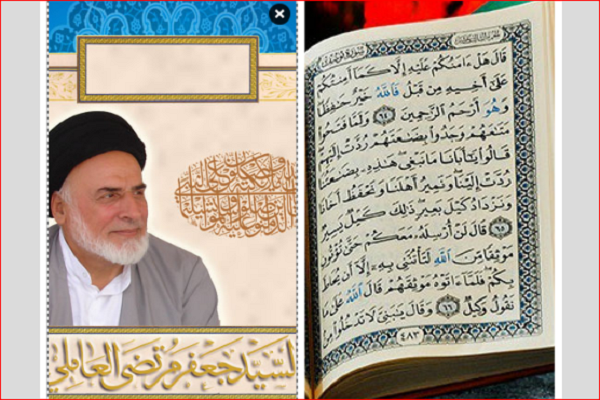 السيد جعفر مرتضى العاملي
قَالَ هَلْ ءَامَنُكُمْ عَلَيْهِ إِلَّا كَمَا أَمِنتُكُمْ
عَلَىٰ أَخِيهِ مِن قَبْلُ فَاللَّهُ خَيْرٌ حَٰفِظًا
وَهُوَ أَرْحَمُ الرَّٰحِمِينَ ٦٤ وَلَمَّا فَتَحُوا
مَتَٰعَهُمْ وَجَدُوا بِضَٰعَتَهُمْ رُدَّتْ إِلَيْهِمْ
قَالُوا يَٰأَبَانَا مَا نَبْغِي هَٰذِهِ بِضَٰعَتُنَا
رُدَّتْ إِلَيْنَا وَنَمِيرُ أَهْلَنَا وَنَحْفَظُ أَخَانَا
وَنَزْدَادُ كَيْلَ بَعِيرٍ ذَٰلِكَ كَيْلٌ يَسِيرٌ
٦٥ قَالَ لَنْ أُرْسِلَهُ مَعَكُمْ حَتَّىٰ تُؤْتُونِ
مَوْثِقًا مِّنَ اللَّهِ لَتَأْتُنَّنِي بِهِ إِلَّا أَن يُحَاطَ
بِكُمْ فَلَمَّا ءَاتَوْهُ مَوْثِقَهُمْ قَالَ اللَّهُ عَلَىٰ مَا
نَقُولُ وَكِيلٌ ٦٦ وَقَالَ يَٰبَنِيَّ لَا تَدْخُلُوا مِن
٤٨٣